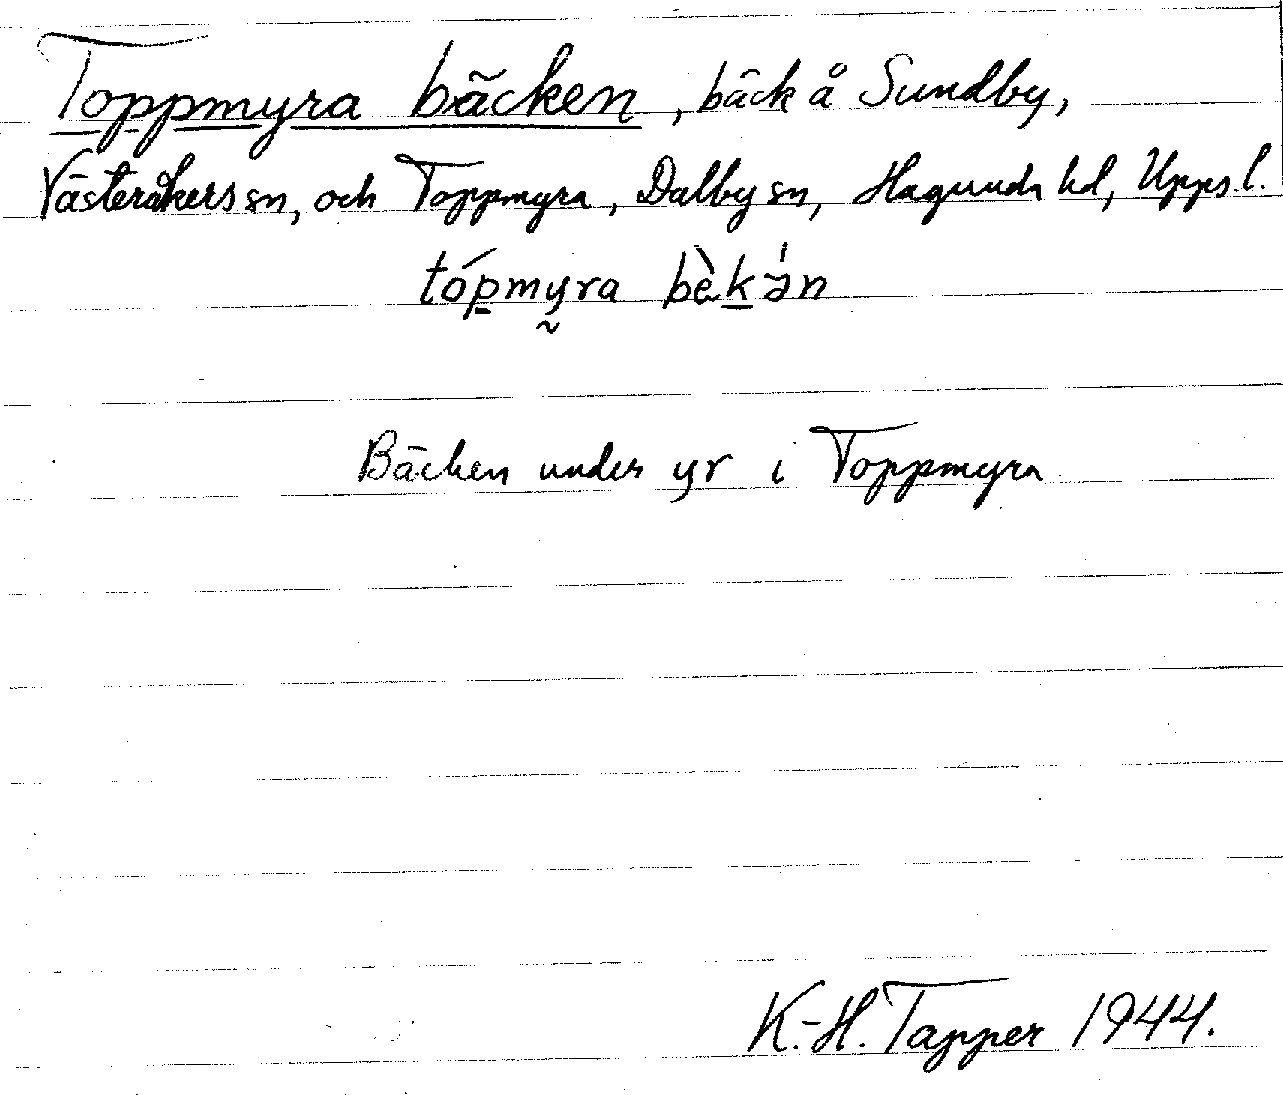 Toppmyra bäcken, bäck å Sundby,
Västeråkers sn, och Toppmyra, Dalby sn, Hagunda hd, Upps. l.
tópmyra bèkən
Bäcken under yr i Toppmyra
K.-H. Tapper 1944.